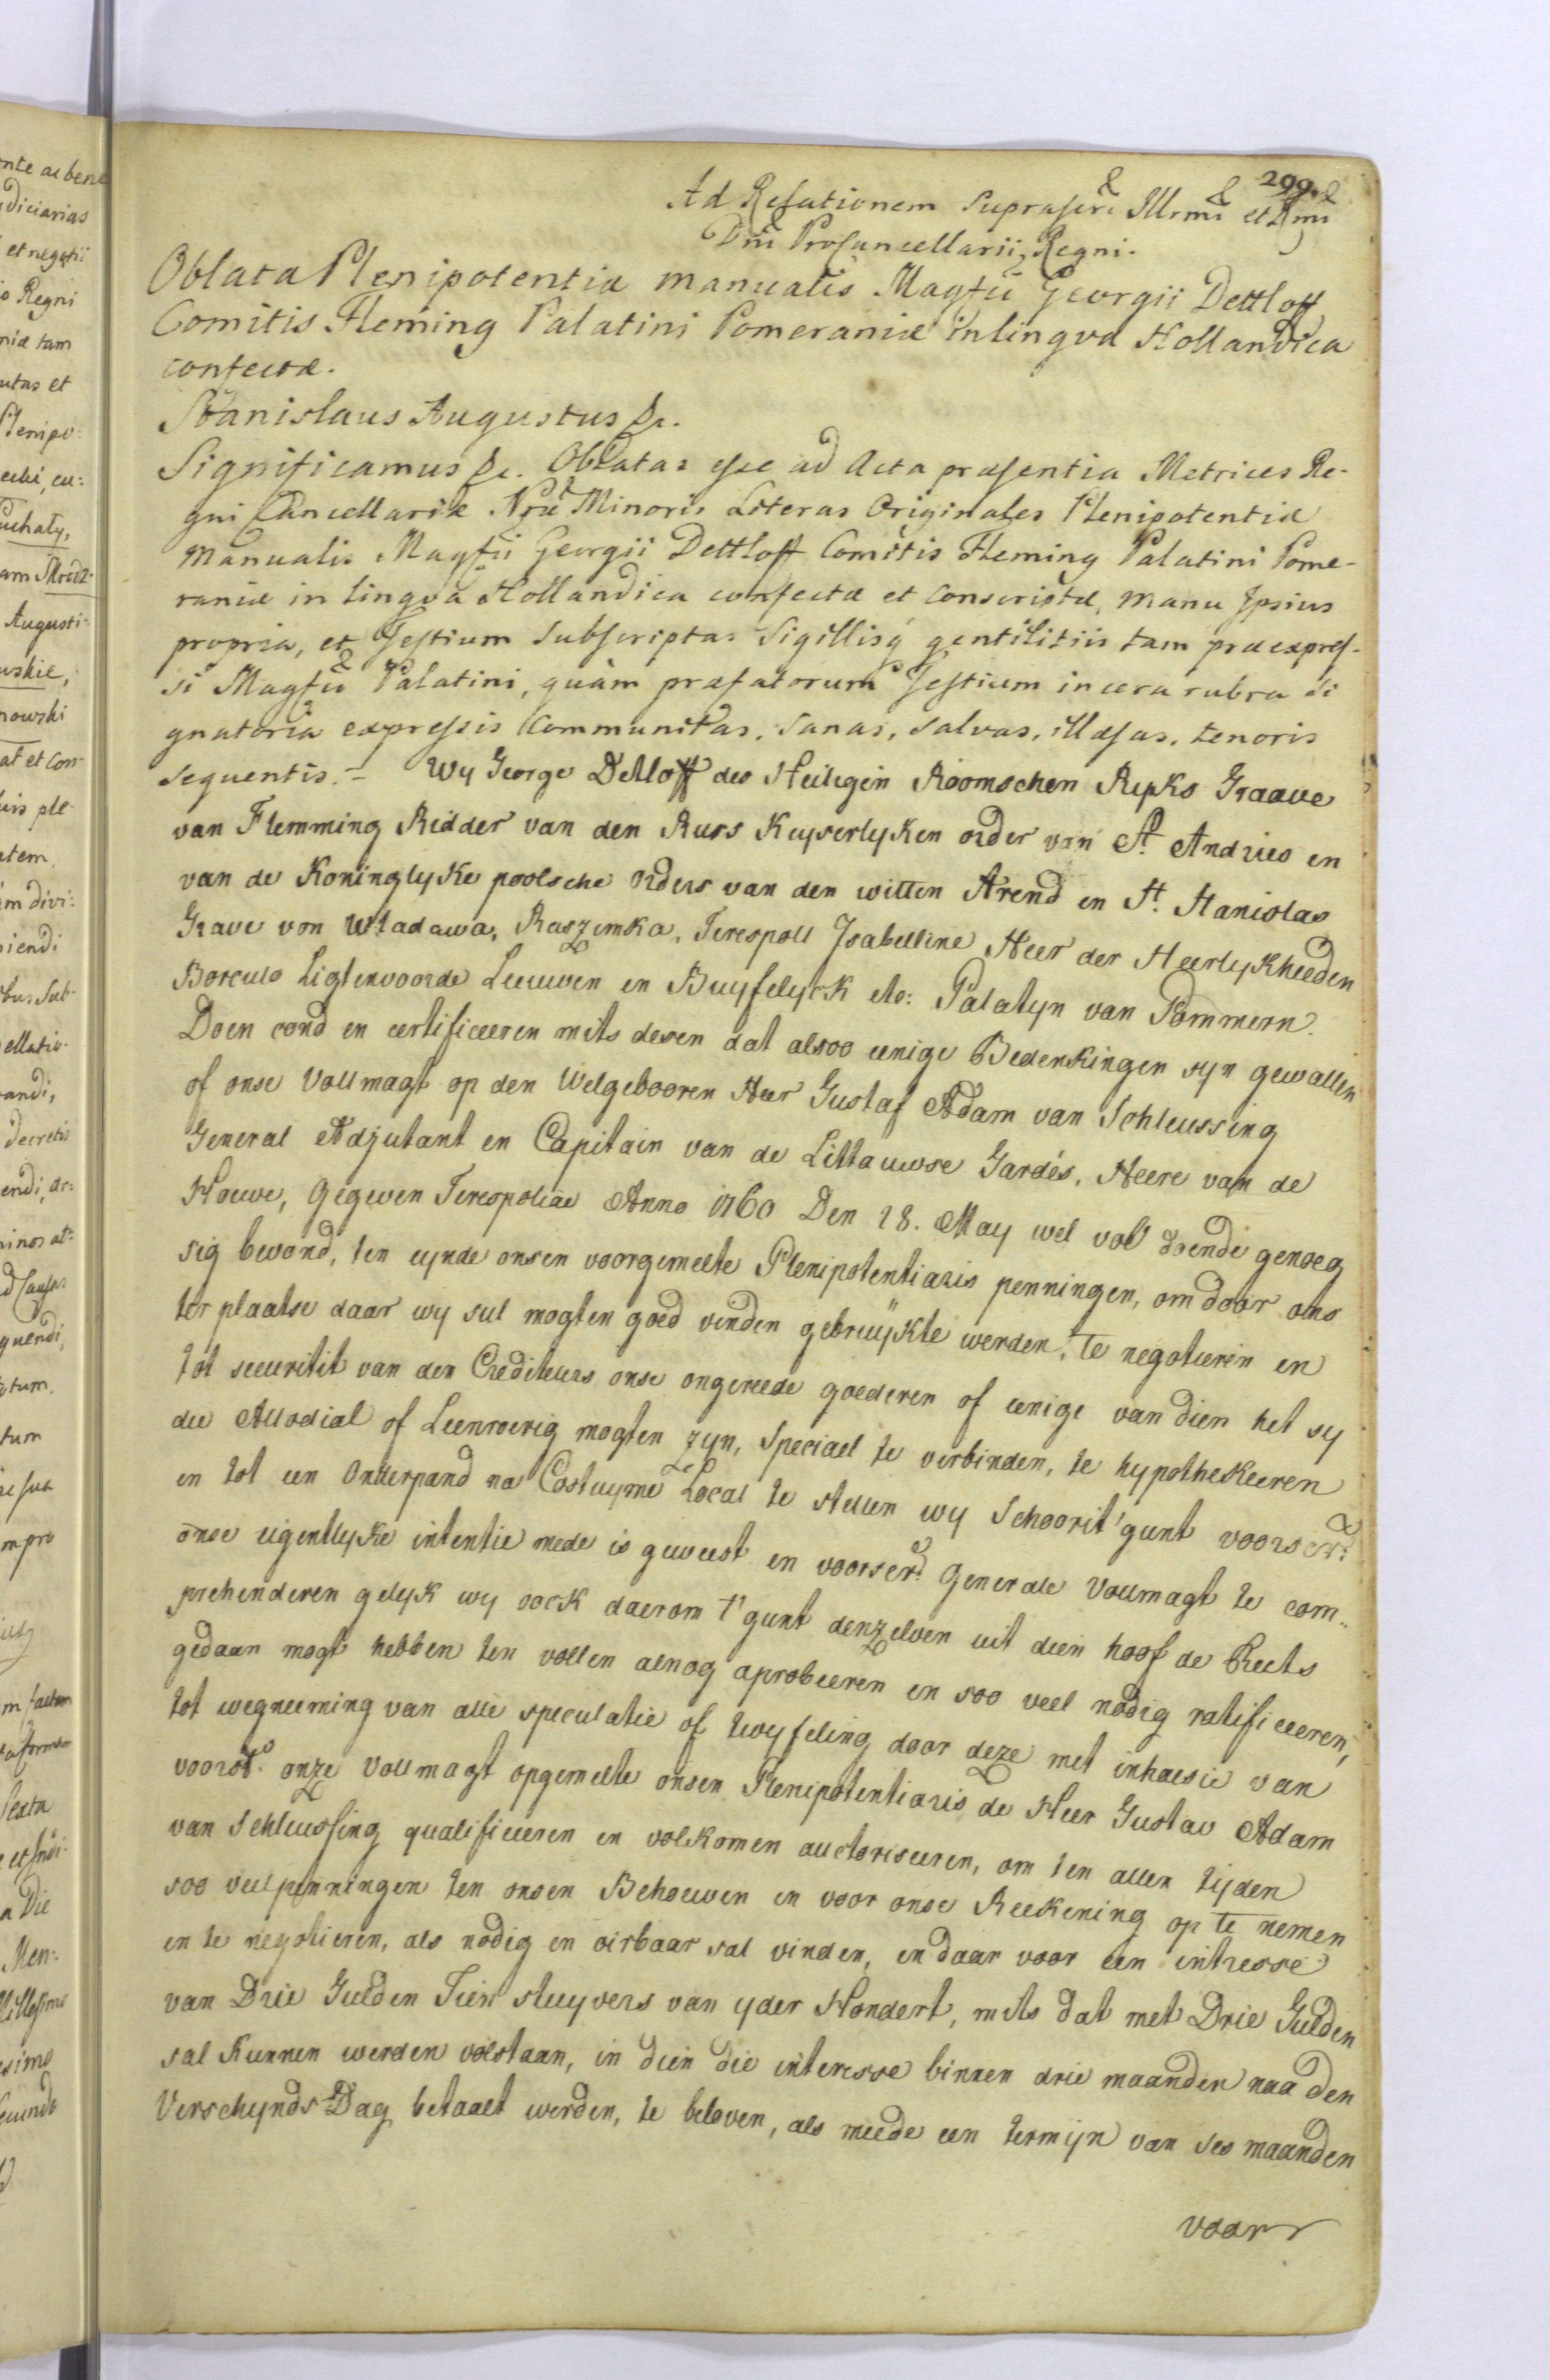 299.
Ad Relationem suprascri Illrmi et Rmi
Dni Procancellarii Regni.
Oblata Plenipotentiæ manualis Magfci Georgii Dettloff
Comitis Fleming Palatini Pomeraniæ in lingva Hollandica
confectæ.
Stanislaus Augustus &c.
Significamus &c. Oblatas esse ad Acta præsentia Metrices Re-
gni Cancellariæ Nræ Minoris Literas Originales Plenipotentiæ
Manualis Magfci Georgii Dettloff Comitis Fleming Palatini Pome-
raniæ in lingva Hollandica confectæ et Conscriptæ, manu Ipsius
propria, et Testium subscriptas Sigillisq gentilitiis tam præexpres-
si Magfci Palatini, quàm præfatorum Testium in cera rubra si
gnatoria expressis Communitas, sanas, salvas, illæsas, tenoris
sequentis. - Wy George Detloff des Heiligen Roomschen Rypks Graave
van Flemming Ridder van den Russ Kuyserlyken order van St. Andries en
van de Koninglyke poolsche Orders van den witten Arend en St. Stanislas
Grave von Wladawa, Raszimka, Terespoll Isabelline Heer der Heerlykheeden
Borculo Ligtenvoorde Leeuwen en Buyfelyck etc: Palatyn van Pommern.
Doen cond en certificeeren mits desen dat alsoo eenige Bedenkingen syn gewallen
of onse Vollmagt op den Welgebooren Heer Gustaf Adam van Schleussing
General Adjutant en Capitain van de Littauwse Gardés, Heere van de
Houwe, Gegewen Terespoliae Anno 1760 Den 28. May wel vol doende genoeg
sig bewond, ten eynde onsen voorgemelte Plenipotentiaris penningen, om door ons
ter plaatse daar wy sul mogten goed vinden gebruÿkte werden, te negotieren en
tot securitit van den Crediteurs onse ongereede goederen of eenige van dien het sy
die Allodial of Leenroerig mogten zyn, Speciael te verbinden, te hypothekeeren
en tot een Onderpand na Costuyme Local te stellen wy Schoorit'gunt voorscr:
onse eigentlyke intentie mede is geweest en voorscr: Generale Vollmagt te com-
prehenderen gelyk wy oock daerom t'gunt denzelven uit dien hoof de Reets
gedaan mogt hebben ten vollen alnog aprobeeren en soo veel nodig ratificeeren,
tot wegneeming van alle speculatie of twyfeling door deze met inhaesie van
voorst. onze Vollmagt opgemelte onsen Plenipotentiaris de Heer Gustav Adam
van Schleussing qualificeeren en volkomen auctoriseeren, om ten allen tijden
soo veel penningen ten onsen Behouwen en voor onse Reekening op te nemen
en te negotieren, als nodig en oirbaar sal vinden, en daar voor een intresse
van Drie Gulden Tien stuyvers van yder Hondert, mits dat met Drie Gulden
sal kunnen werden volstaan, in dien die interesse binnen drie maanden naa den
Verschynds Dag betaalt werden, te beloven, als meede een termijn van ses maanden
voorr